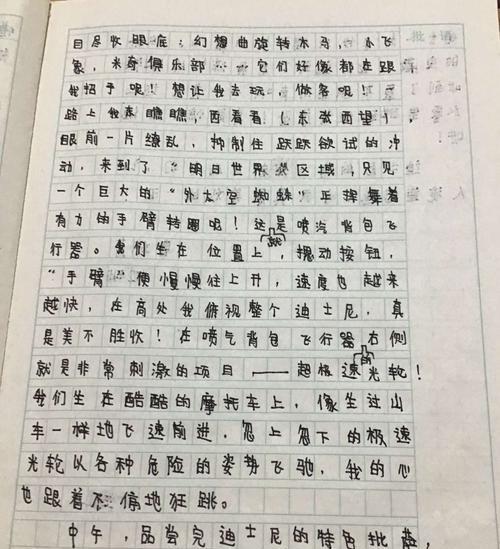 目尽收眼底；幻想曲旋转木马，小飞
象，米奇俱乐部……它们好像都在跟
我招手呢！想让我去玩，做客呢！一
路上我东瞧瞧，西看看（东张西望），
眼前一片缭乱，抑制住跃跃欲试的冲
动，来到了“明日世界”区域，只见
一个巨大的“外太空蜘蛛”正挥舞着
有力的手臂转圈呢！这是喷汽背包飞
跳
行器。我们坐在位置上，摁动按钮，
“手臂”便慢慢往上升，速度也越来
越快，在高处我俯视整个迪士尼，真
是美不胜收！在喷气背包飞行器右侧
的
就是非常刺激的项目——超极速光轮！
我们坐在酷酷的摩托车上，像坐过山
车一样地飞速前进，忽上忽下的极速
光轮以各种危险的姿势飞驰，我的心
也跟着不停地狂跳。
中午，品尝完迪士尼的特色批萨，